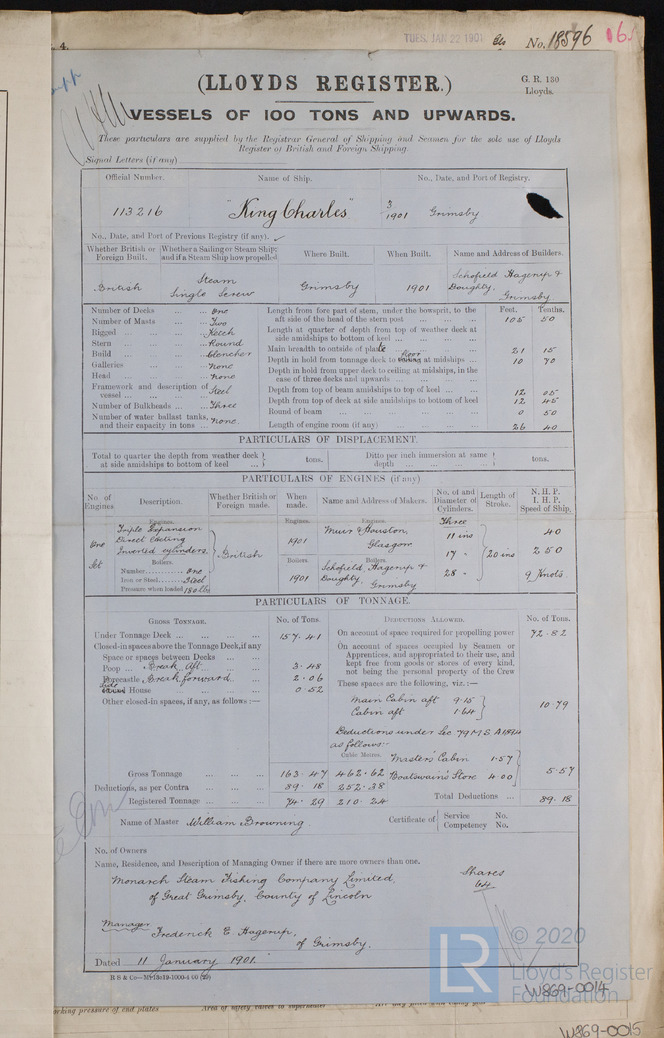 4.
TUES. JAN 22 1901
No. 18596 16
(LLOYDS REGISTER.)
G. R. 130
Lloyds.
VESSELS OF 100 TONS AND UPWARDS.
These particulars are supplied by the Registrar General of Shipping and Seamen for the sole use of Lloyds
Register of British and Foreign Shipping.
Signal Letters (if any)
Official Number. Name of Ship. No., Date, and Port of Registry.
113216 "King Charles" 3/1901 Grimsby
No., Date, and Port of Previous Registry (if any). ✓
Whether British or Foreign Built. Whether a Sailing or Steam Ship; and if a Steam Ship how propelled Where Built. When Built. Name and Address of Builders.
British Steam Single Screw Grimsby 1901 Schofield Hagerup & Doughty. Grimsby
Number of Decks ... ... One
Number of Masts ... ... Two
Rigged ... ... Ketch
Stern ... ... Round
Build ... ... Clencher
Galleries ... ... None
Head ... ... None
Framework and description of vessel ... ... Steel
Number of Bulkheads ... ... Three
Number of water ballast tanks, and their capacity in tons ... None
Feet. Tenths.
Length from fore part of stem, under the bowsprit, to the aft side of the head of the stern post ... 105 50
Length at quarter of depth from top of weather deck at side amidships to bottom of keel ...
Main breadth to outside of plate ... 21 15
Depth in hold from tonnage deck to floor at midships ... 10 70
Depth in hold from upper deck to ceiling at midships, in the case of three decks and upwards ...
Depth from top of beam amidships to top of keel ... 12 05
Depth from top of deck at side amidships to bottom of keel 12 45
Round of beam ... 0 50
Length of engine room (if any) 26 40
PARTICULARS OF DISPLACEMENT.
Total to quarter the depth from weather deck at side amidships to bottom of keel ... tons. Ditto per inch immersion at same depth ... tons.
PARTICULARS OF ENGINES (if any)
No. of Engines. Description. Whether British or Foreign made. When made. Name and Address of Makers. No. of and Diameter of Cylinders. Length of Stroke. N. H. P. I. H. P. Speed of Ship.
One Set
Engines.
Triple Expansion
Direct Acting
Inverted cylinders.
Boilers.
Number ......... One
Iron or Steel ......... Steel
Pressure when loaded 180 lbs
British
Engines. 1901
Boilers. 1901
Engines. Muir & Houston, Glasgow
Boilers. Schofield, Hagerup & Doughty. Grimsby
Three
11 ins
17 "
28 "
20 ins
40
250
9 Knots.
PARTICULARS OF TONNAGE.
GROSS TONNAGE. No. of Tons. DEDUCTIONS ALLOWED. No. of Tons.
Under Tonnage Deck ... 157.41
Closed-in spaces above the Tonnage Deck, if any
Space or spaces between Decks ...
Poop ... Break Aft 3.48
Forecastle Break forward 2.06
Side House 0.52
Other closed-in spaces, if any, as follows :—
Gross Tonnage ... 163.47 462.62
Deductions, as per Contra ... 89.18 252.38
Registered Tonnage ... 74.29 210.24
Cubic Metres.
On account of space required for propelling power 72.82
On account of spaces occupied by Seamen or Apprentices, and appropriated to their use, and kept free from goods or stores of every kind, not being the personal property of the Crew
These spaces are the following, viz. :—
Main Cabin aft 9.15
Cabin aft 1.64
10.79
Deductions under Sec 79 M.S. A 1894
as follows:-
Master's Cabin 1.57
Boatswain's Store 4.00
5.57
Total Deductions ... 89.18
Name of Master William Browning
Certificate of Service No. Competency No.
No. of Owners
Name, Residence, and Description of Managing Owner if there are more owners than one.
Monarch Steam Fishing Company Limited.
of Great Grimsby, County of Lincoln
Shares
64
Manager
Frederick E. Hagerup,
of Grimsby.
Dated 11 January 1901.
© 2020
LR
Lloyd's Register
Foundation
W869-0014
orking pressure of end plates
Area of safety valves to superheater
W869-0015